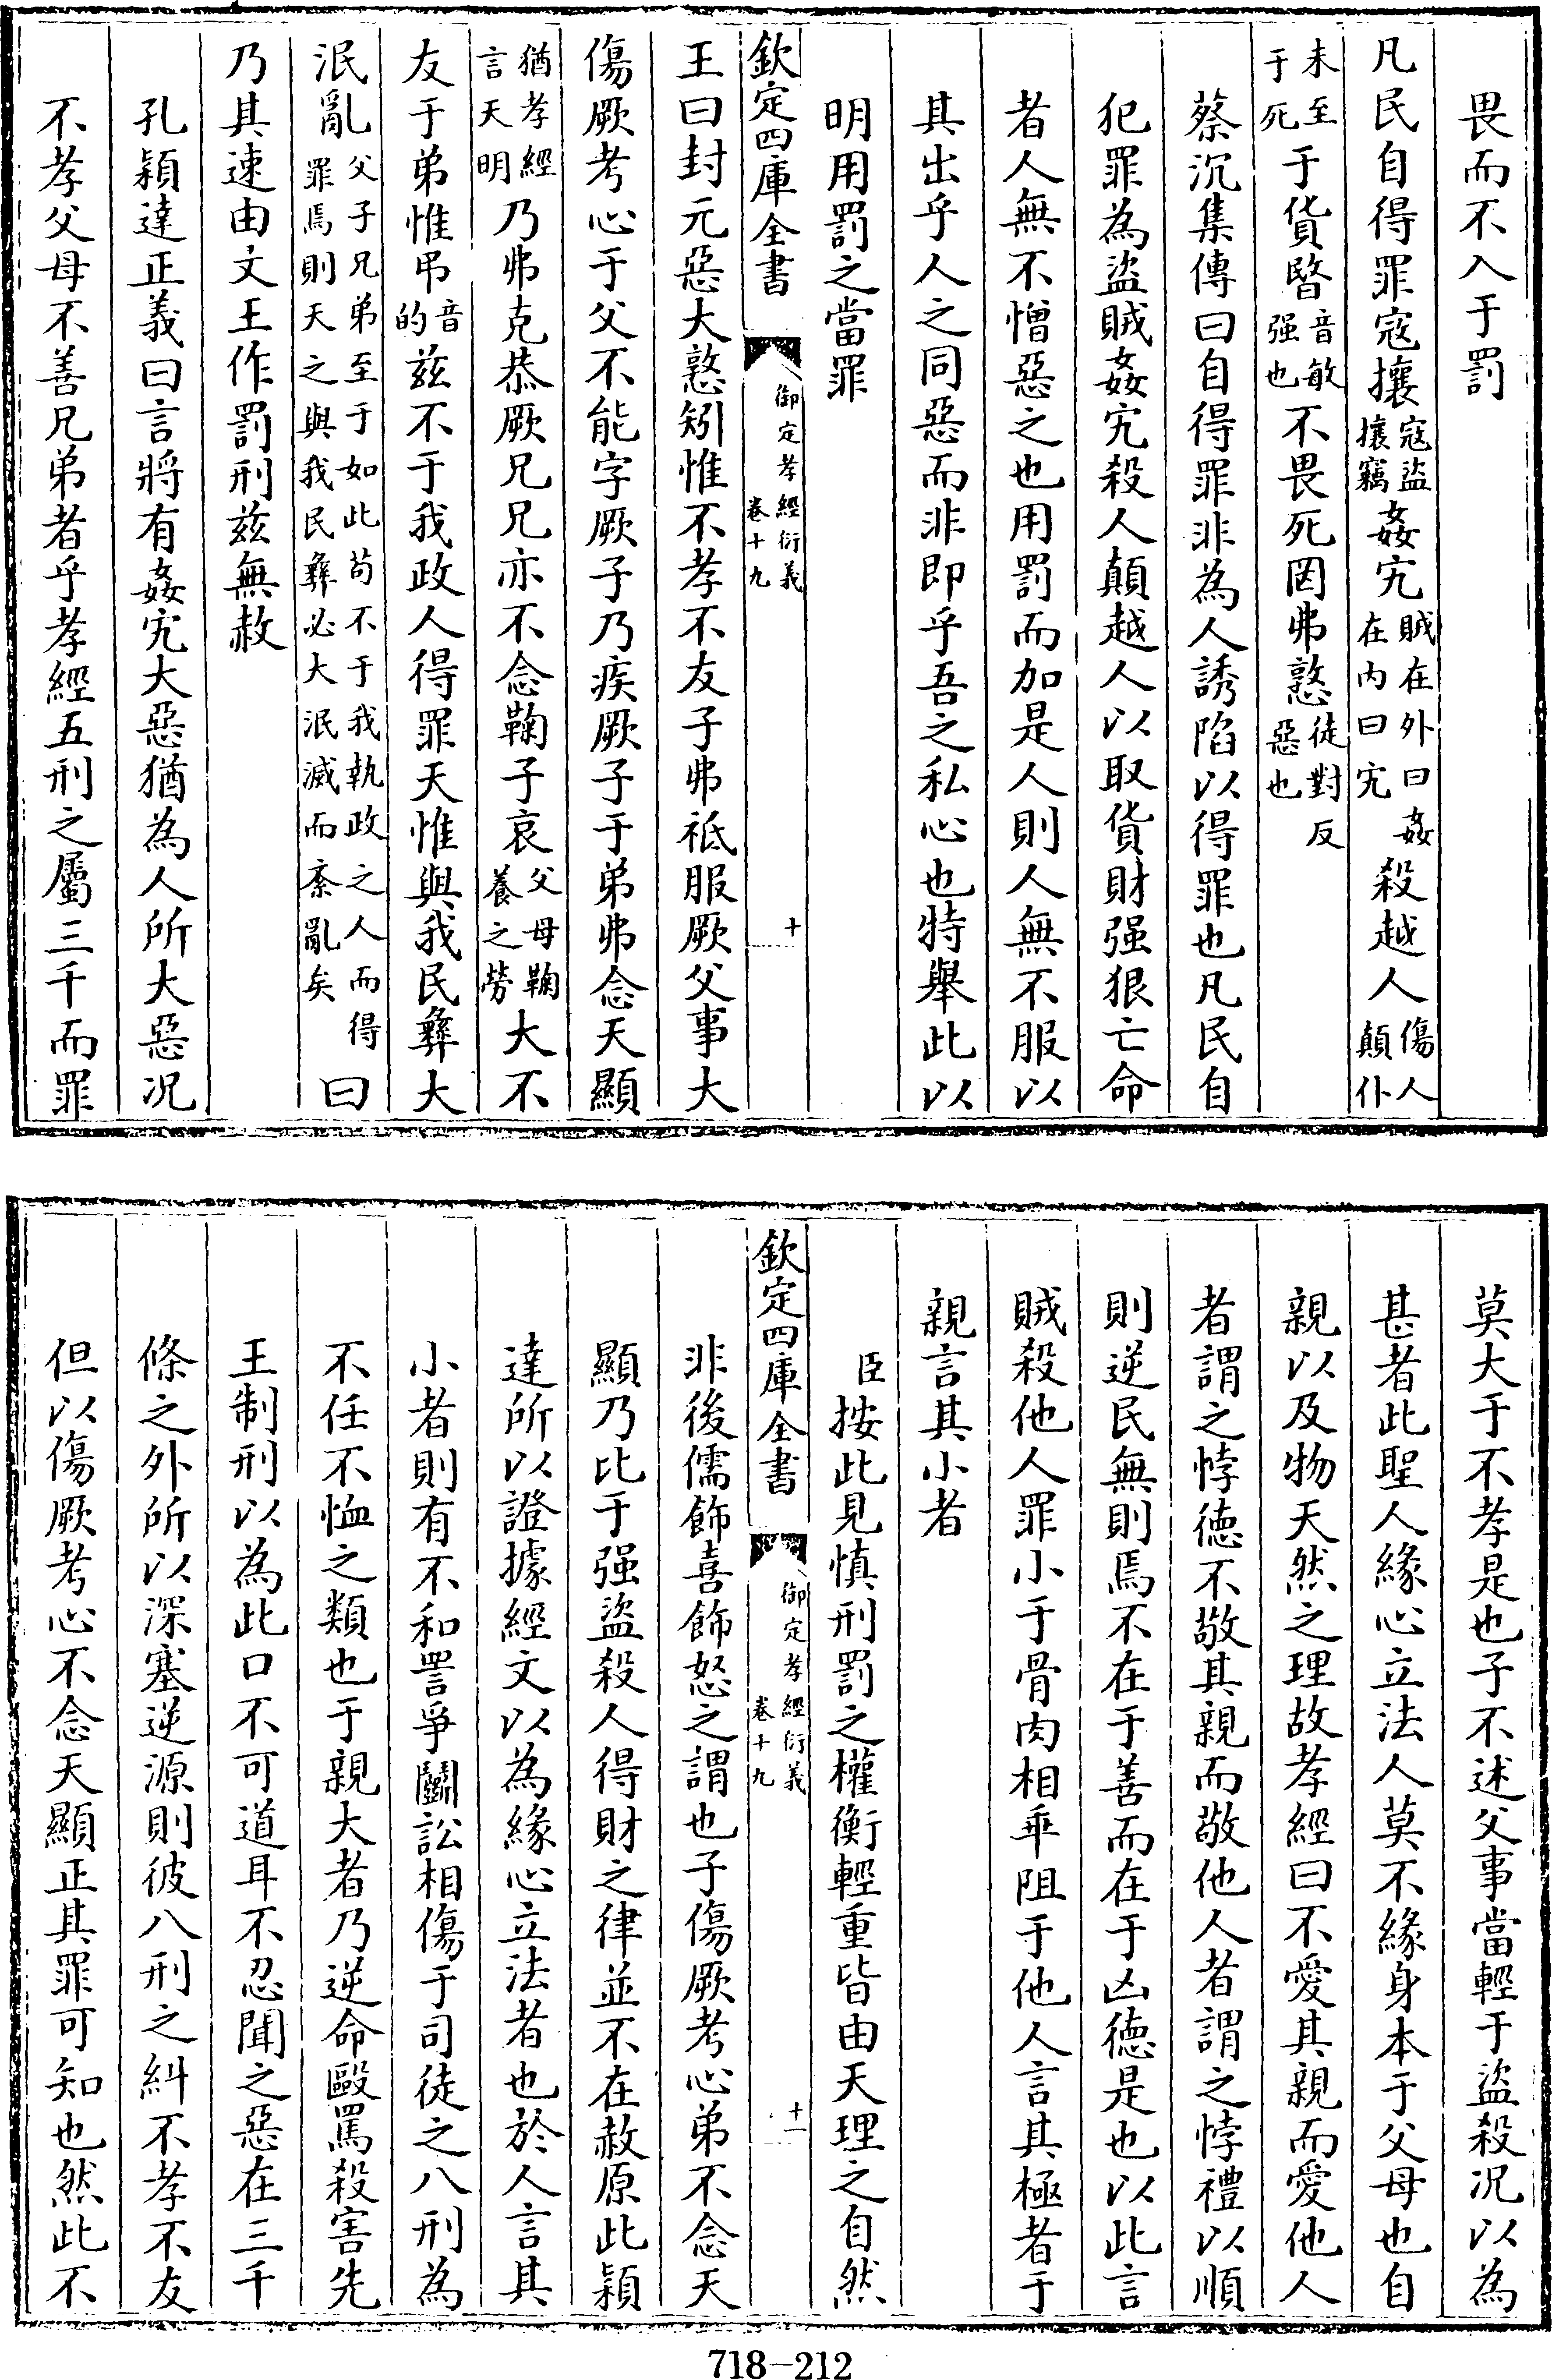 畏而不入于罰
凡民自得罪寇攘寇盜攘竊姦宄賊在外曰姦在内曰宄殺越人傷人顛仆
未至于死于貨暋音敏强也不畏死罔弗憝徒對反惡也
蔡沉集傳曰自得罪非為人誘陷以得罪也凡民自
犯罪為盜賊姦宄殺人顛越人以取貨財强狠亡命
者人無不憎惡之也用罰而加是人則人無不服以
其出乎人之同惡而非即乎吾之私心也特舉此以
明用罰之當罪
欽定四庫全書 御定孝經衍義卷十九 十
王曰封元惡大憝矧惟不孝不友子弗祗服厥父事大
傷厥考心于父不能字厥子乃疾厥子于弟弗念天顯
猶孝經言天明乃弗克恭厥兄兄亦不念鞠子哀父母鞠養之勞大不
友于弟惟弔音的兹不于我政人得罪天惟與我民彝大
泯亂父子兄弟至于如此苟不于我執政之人而得罪焉則天之與我民彝必大泯滅而紊亂矣曰
乃其速由文王作罰刑兹無赦
孔穎達正義曰言將有姦宄大惡猶為人所大惡况
不孝父母不善兄弟者乎孝經五刑之屬三千而罪
莫大于不孝是也子不述父事當輕于盜殺况以為
甚者此聖人緣心立法人莫不緣身本于父母也自
親以及物天然之理故孝經曰不愛其親而愛他人
者謂之悖德不敬其親而敬他人者謂之悖禮以順
則逆民無則焉不在于善而在于凶德是也以此言
賊殺他人罪小于骨肉相乖阻于他人言其極者于
親言其小者
臣按此見慎刑罰之權衡輕重皆由天理之自然
欽定四庫全書 御定孝經衍義卷十九 十一
非後儒飾喜飾怒之謂也子傷厥考心弟不念天
顯乃比于强盜殺人得財之律並不在赦原此穎
達所以證據經文以為緣心立法者也於人言其
小者則有不和詈爭鬭訟相傷于司徒之八刑為
不任不恤之類也于親大者乃逆命毆罵殺害先
王制刑以為此口不可道耳不忍聞之惡在三千
條之外所以深塞逆源則彼八刑之糾不孝不友
但以傷厥考心不念天顯正其罪可知也然此不
718-212